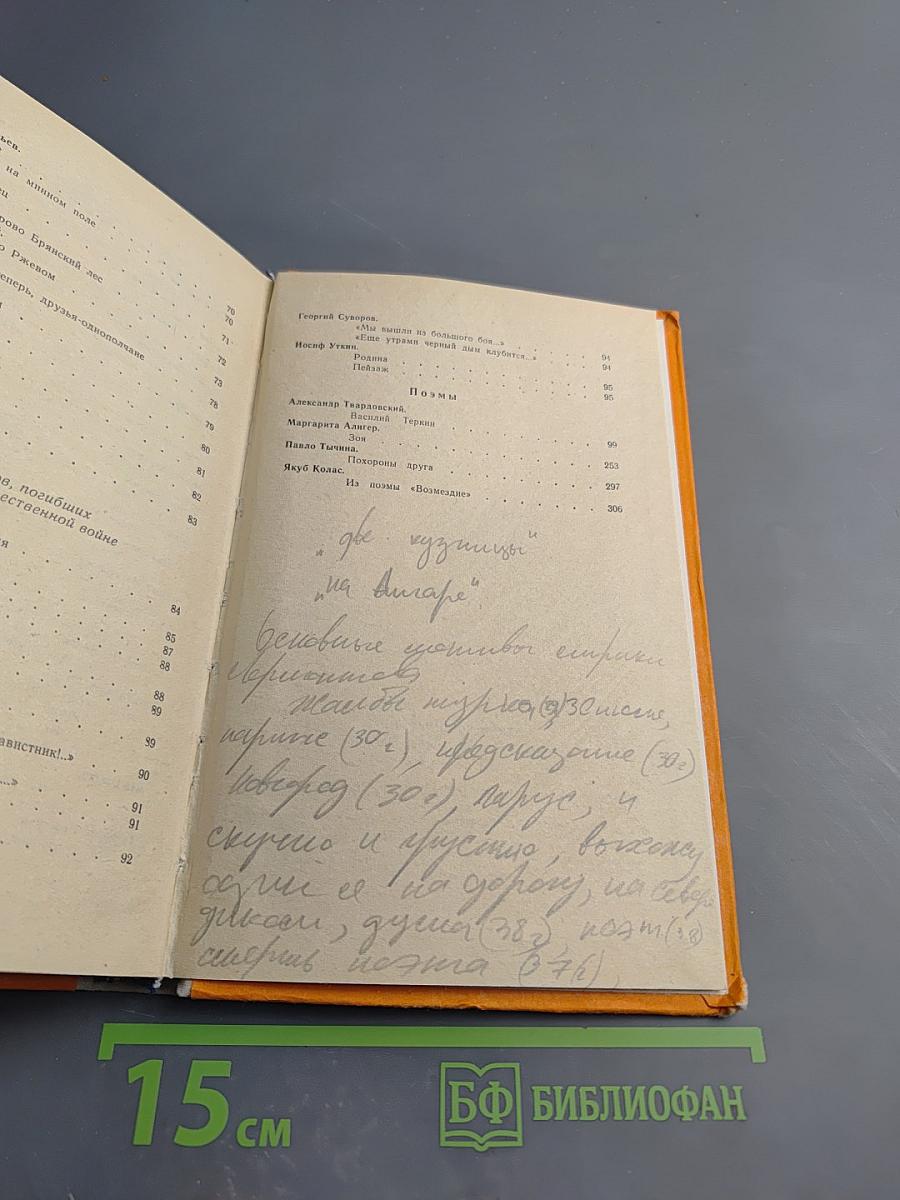 ьев.
на минном поле
ец
рово Брянский лес
о Ржевом
теперь, друзья-однополчане
70
70
71
72
73
78
79
80
81
82
83
ов, погибших
ественной войне
84
85
87
88
88
89
89
авистник!..»
90
...»
91
91
92
Георгий Суворов.
«Мы вышли из большого боя...» 94
«Еще утрами черный дым клубится...» 94
Иосиф Уткин.
Родина 95
Пейзаж 95
Поэмы
Александр Твардовский.
Василий Теркин 99
Маргарита Алигер.
Зоя 253
Павло Тычина.
Похороны друга 297
Якуб Колас.
Из поэмы «Возмездие» 306
„две кузницы"
„на Ангаре"
Основные мотивы лирики
Лермонтова
Жалобы турка,
париже (30 г), предсказание (30 г)
Новгород (30 г), Парус, и
скучно и грустно, выхожу
один я на дорогу, на севере
диком, дума (38 г), поэт (38)
смерть поэта (37 г),
15 см
БФ БИБЛИОФАН